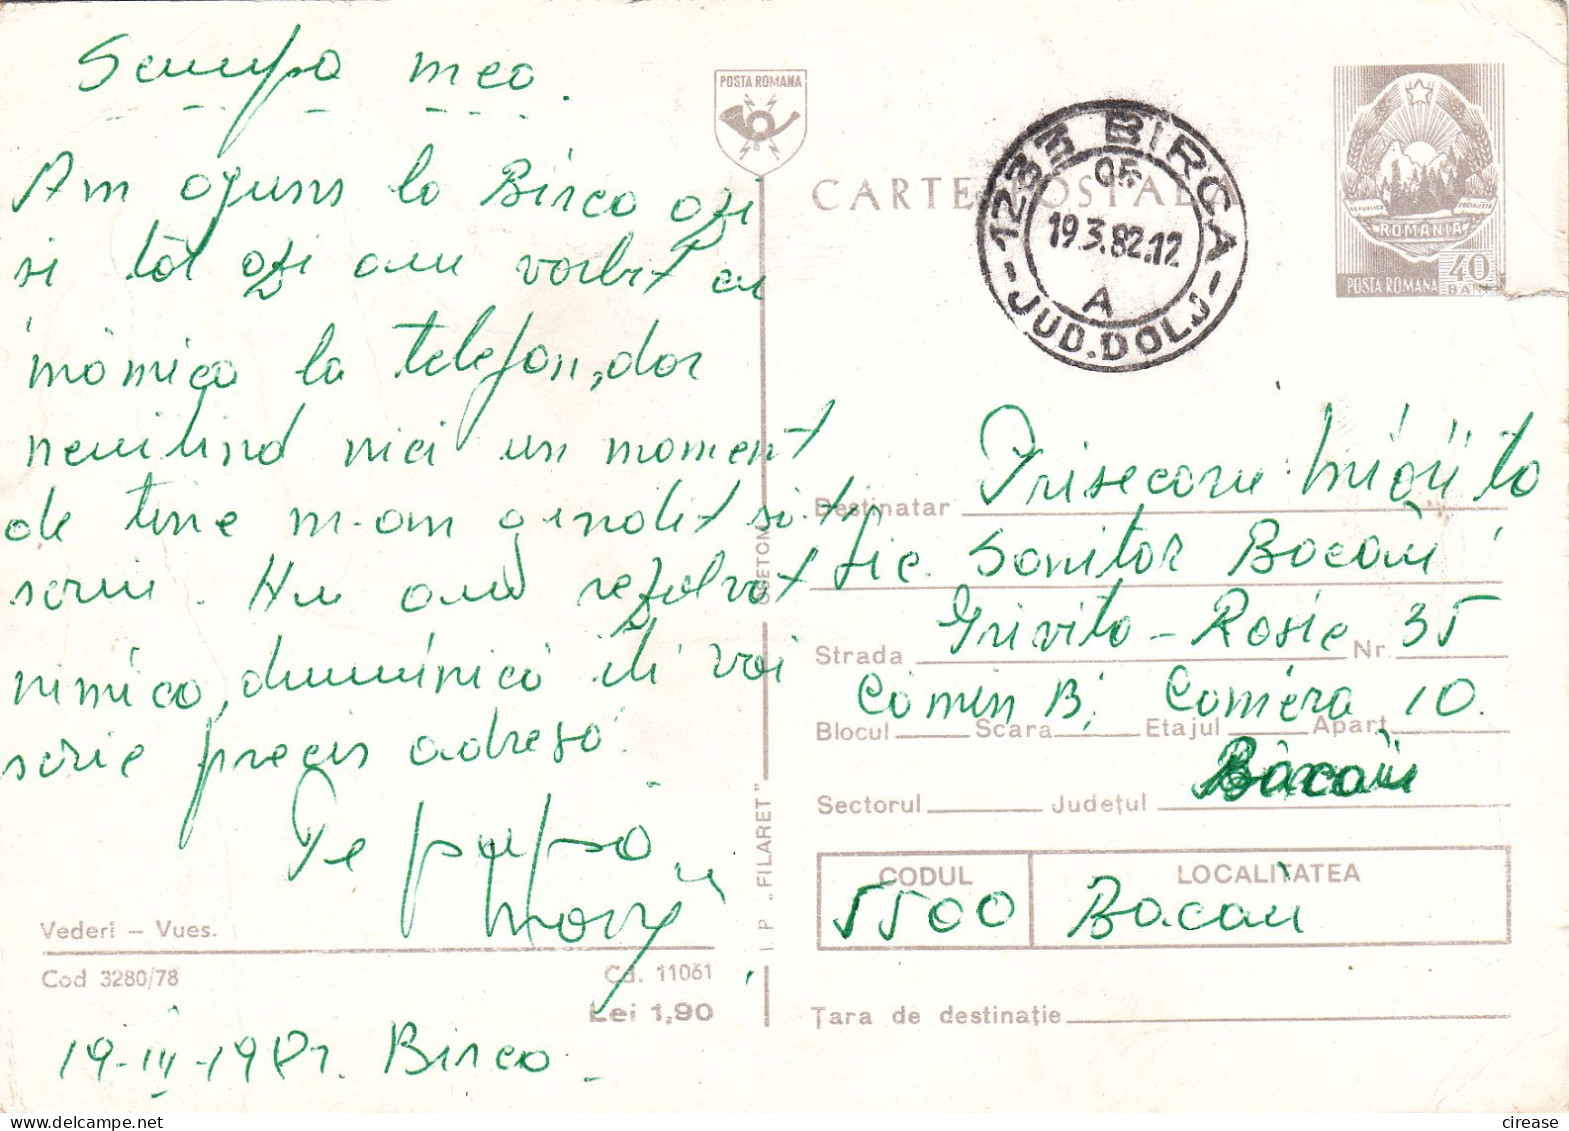 Scumpa mea.
Am ajuns la Birca azi
si tot azi am vorbit cu
mămica la telefon, dar
neuitînd nici un moment
de tine m-am gîndit să-ți
scriu. Nu am rezolvat
nimica, duminică îți voi
scrie precis adresa.
Te pupă
19-III-1982. Birca.
Vederi – Vues.
Cod 3280/78
Cd. 11061
Lei 1,90
I P „FILARET"
POSTA ROMANA
CARTE POSTALA
1233 BIRCA
05
19.3.82.12
A
JUD. DOLJ
REPUBLICA SOCIALISTA
ROMANIA
POSTA ROMANA 40 BANI
Destinatar Prisecaru
Lic. Sanitar Bacău
Strada Grivița-Rosie Nr. 35
Cămin B, Camera 10.
Blocul Scara Etajul Apart.
Bacău
Sectorul Județul
CODUL LOCALITATEA
5500 Bacău
Țara de destinație
cirease